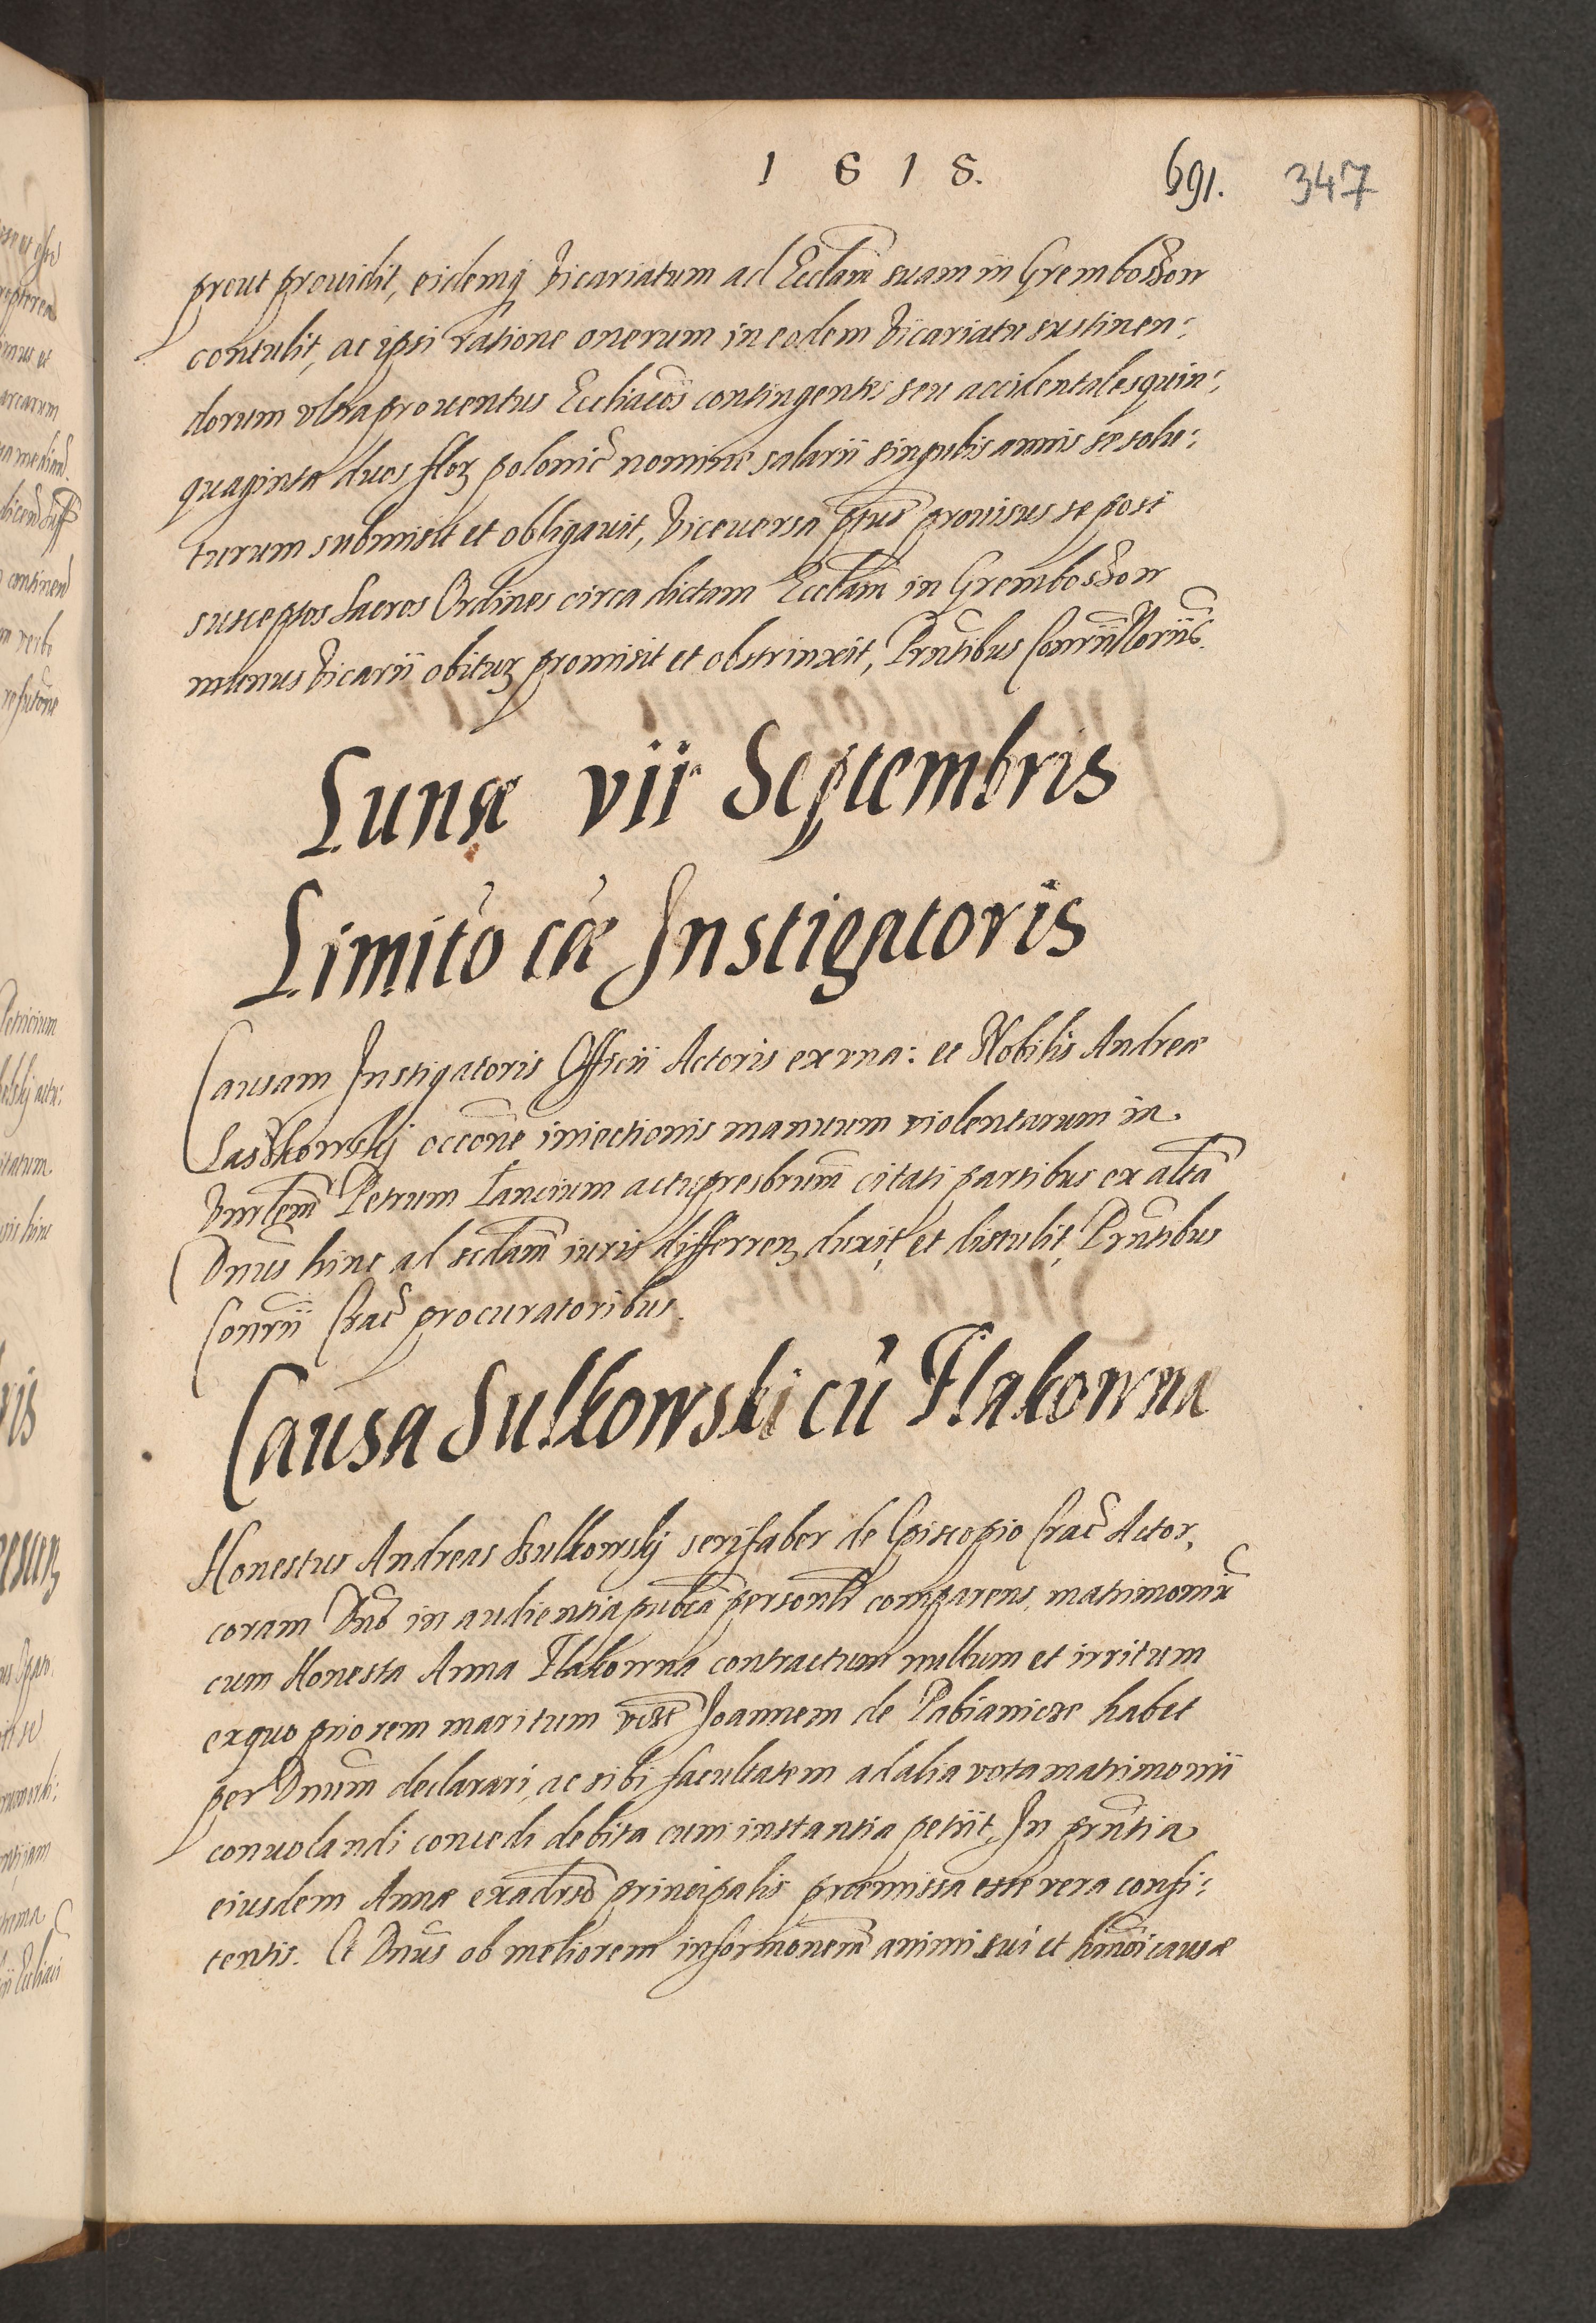 1 6 1 8. 691. 347
prout prouidit, eidemq Vicariatum ad Eccl̃am suam in Gremboszow
contulit, ac ipsi ratione onerum in eodem Vicariatu sustinen:
dorum vltra prouentus Eccl̃iacos contingentes seu accidentales quin:
quaginta duos flor polonic nomine salarii singulis annis se solu:
turum submisit et obligauit, Viceuersa ptus prouisus se post
susceptos Sacros Ordines circa dictam Eccl̃am in Gremboszow
munus Vicarii obitur promisit et obstrinxit, Prñtibus
Lunæ vii Septembris
Limitõ cæ Instigatoris
Causam Instigatoris Officii Actoris ex vna: et Nobilis Andreæ
Laszkowskij occõne iniectionis manuum violentarum in
Petrum Lancium citati partibus ex altã
Dnus hinc ad sedam iuris differren duxit, et distulit, Prñtibus
Conrii Crac procuratoribus.
Causa Sulkowski cũ Flakowna
Honestus Andreas Sulkowskij serifaber de Episcopio Crac Actor,
coram Dno in audientia publca personlr comparens, matrimoniũ
cum Honesta Anna Flakowna contractum nullum et irritum
ex quo priorem maritum Joannem de Pabianicze habet
per Dnum declarari, ac sibi facultatem ad alia vota matrimonii
conuolandi concedi debita cum instantia petiit, In prñtia
eiusdem Annæ ex adrso principalis præmissa esse vera confi:
tentis. Et Dnus ob meliorem informõnem animi sui et hmõi causæ